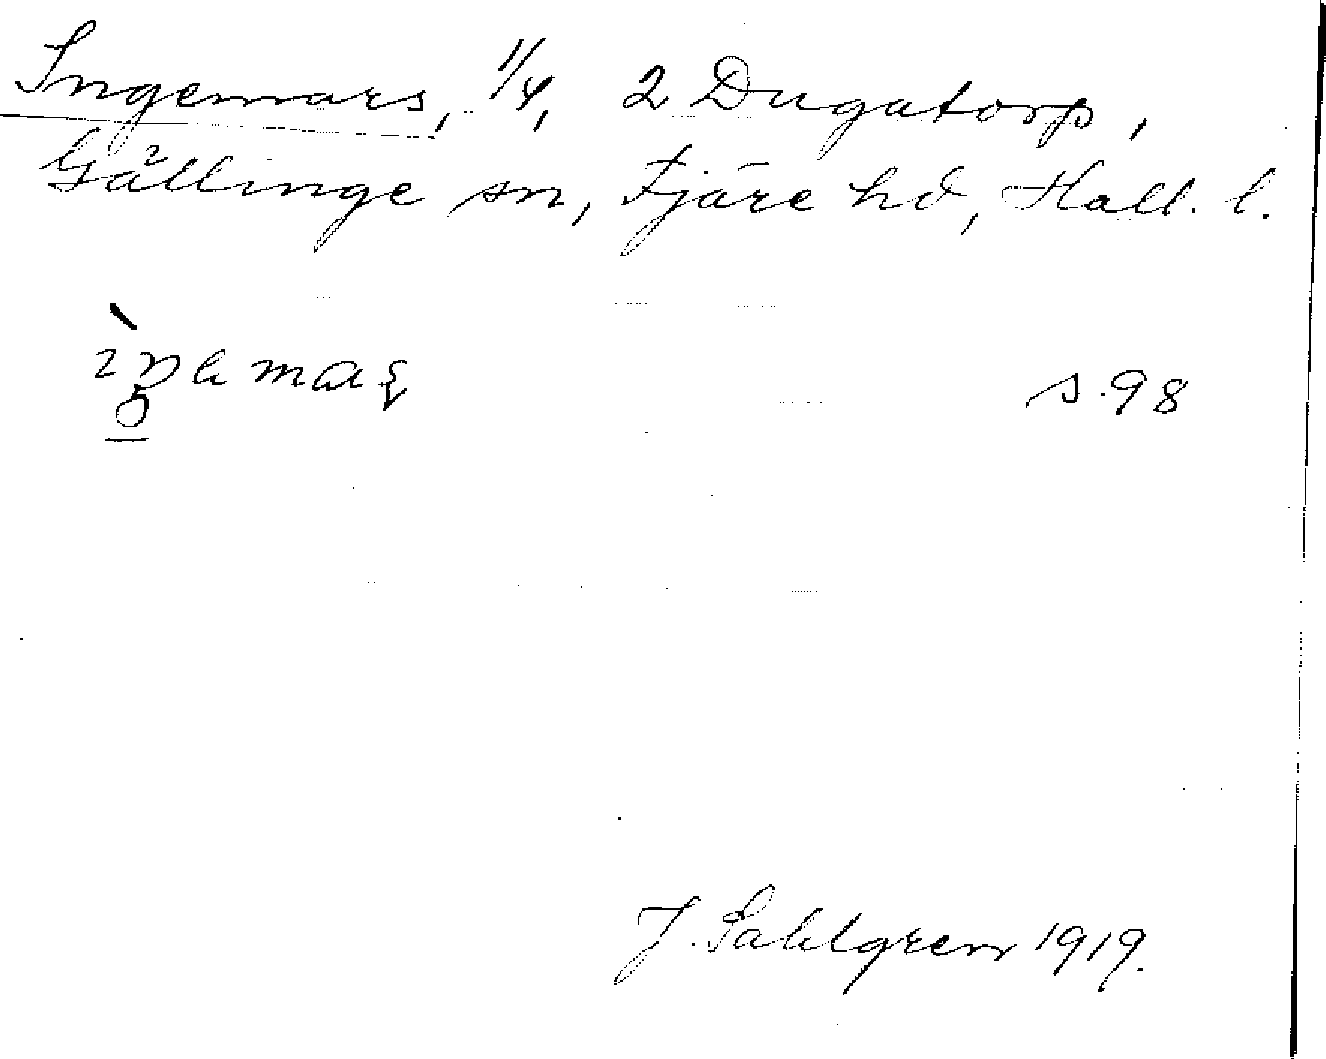 Ingemars, 1/4, 2 Dugatorp,
Gällinge sn, Fjäre hd, Hall. l.
s. 98
J. Sahlgren 1919.